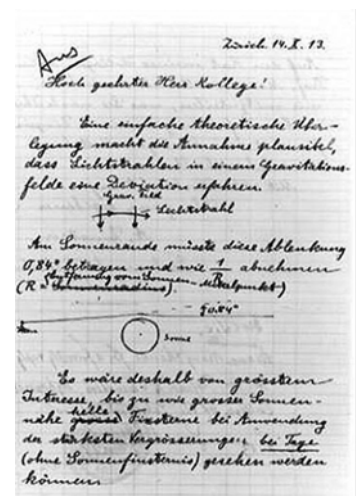 Aus
Zürich. 14. X. 13.
Hoch geehrter Herr Kollege!
Eine einfache theoretische Über-
legung macht die Annahme plausibel,
dass Lichtstrahlen in einem Gravitations-
felde eine Deviation erfahren.
Grav. Feld
Lichtstrahl
Am Sonnenrande müsste diese Ablenkung
0,84" betragen und wie 1/R abnehmen
(R = Sonnenradius Entfernung vom Sonnen-Mittelpunkt).
0.84"
Sonne
Es wäre deshalb von grösstem
Interesse, bis zu wie grosser Sonnen-
nähe grosse helle Fixsterne bei Anwendung
der stärksten Vergrösserungen bei Tage
(ohne Sonnenfinsternis) gesehen werden
können.